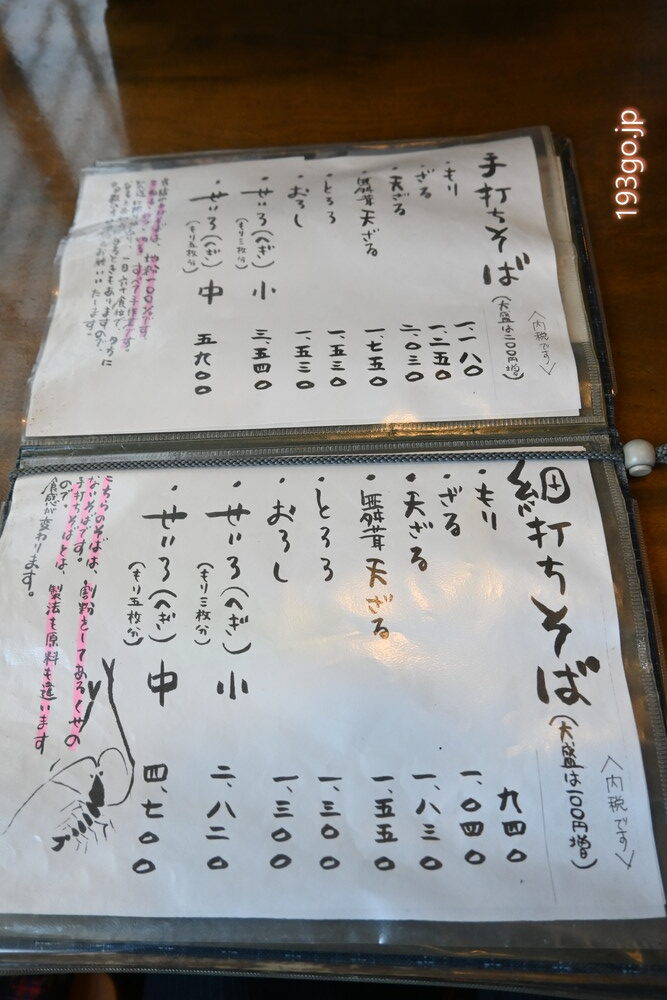 〈内税です〉
手打ちそば(大盛は二〇〇円増)
・もり 一、一八〇
・ざる 一、二五〇
・天ざる 二、〇三〇
・舞茸天ざる 一、七五〇
・とろろ 一、五三〇
・おろし 一、五三〇
・せいろ(へぎ)小 三、五四〇
(もり三枚分)
・せいろ(へぎ)中 五九〇〇
(もり五枚分)
地粉一〇〇%です。
一日六十食位で、夕方に
いたします。
〈内税です〉
細打ちそば(大盛は一〇〇円増)
・もり 九四〇
・ざる 一、〇四〇
・天ざる 一、八三〇
・舞茸天ざる 一、五五〇
・とろろ 一、三〇〇
・おろし 一、三〇〇
・せいろ(へぎ)小 二、八二〇
(もり三枚分)
・せいろ(へぎ)中 四、七〇〇
(もり五枚分)
こちらのそばは、割粉をしてあるくせの
ないそばです。
手打ちそばとは、製法も原料も違います
ので、
食感が変わります。
193go.jp